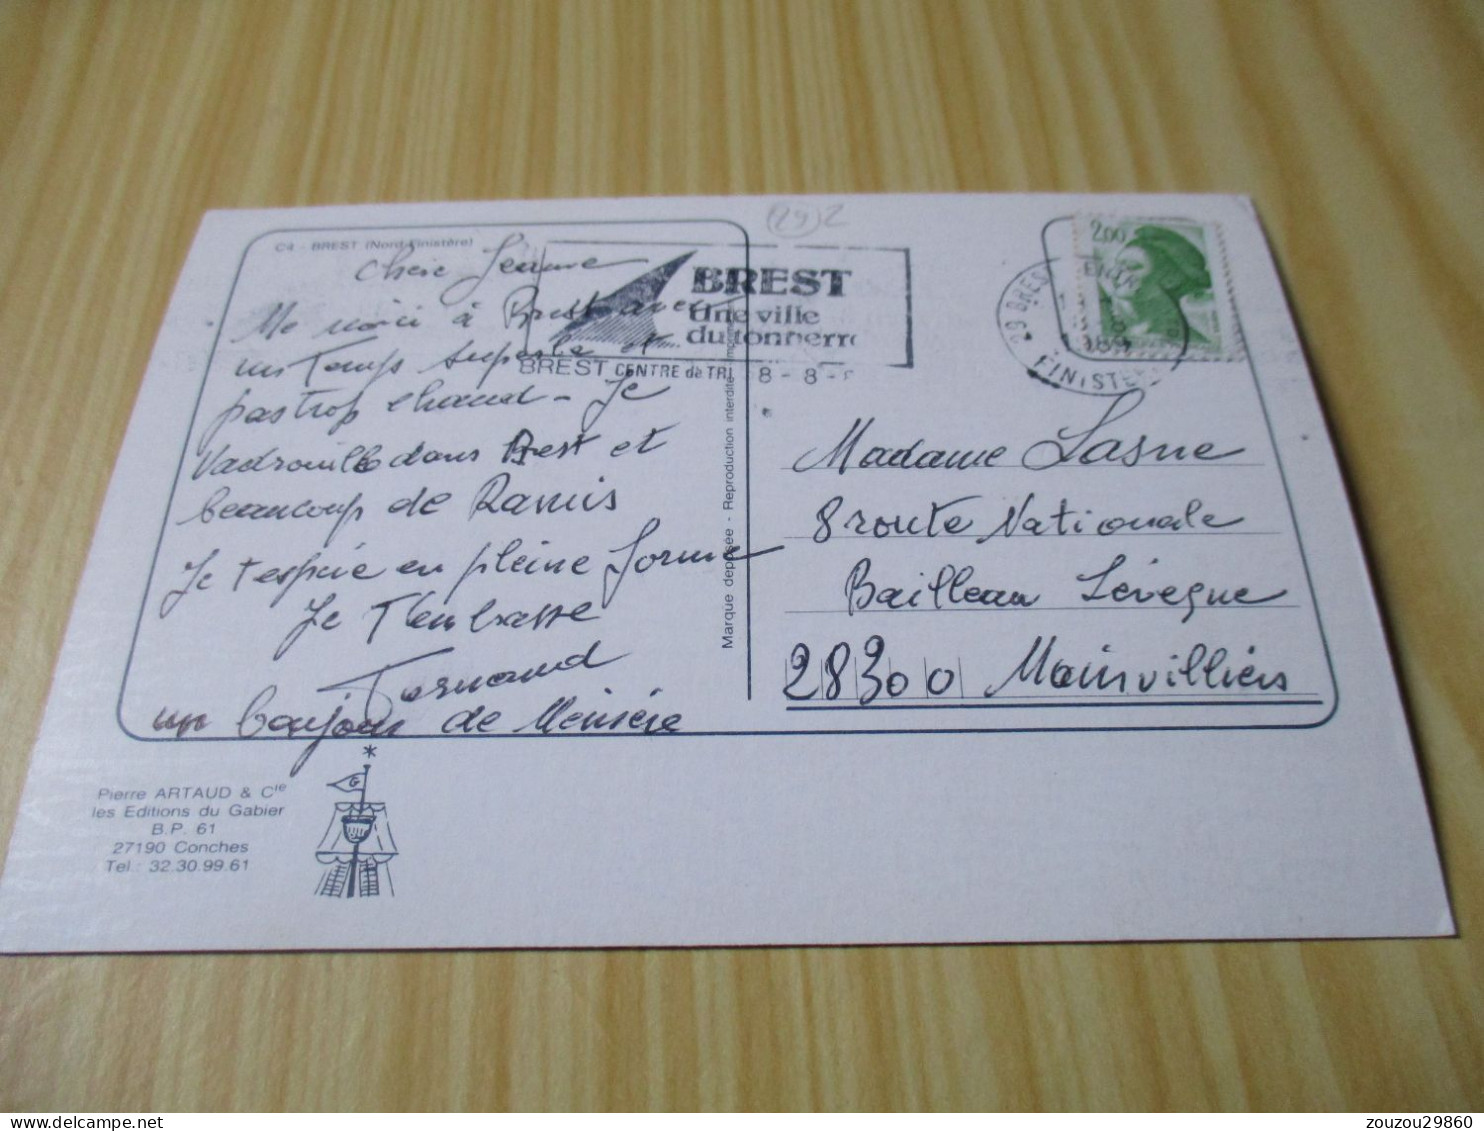 (29)2
C4 - BREST (Nord-Finistère)
Chère Jeanne
Me voici à Brest avec
un Temps superbe et
pas trop chaud - Je
Vadrouille dans Brest et
beaucoup de Ramis
Je t'espère en pleine forme
Je T'embrasse
Fernand
un bonjour de
BREST
Une ville
du tonnerre
BREST CENTRE de TRI 8-8-
29 BREST
1989
FINISTERE
2,00
Madame Lasne
8 route Nationale
Bailleau Lévêque
28300 Mainvilliers
Marque déposée - Reproduction interdite
Pierre ARTAUD & Cie
les Editions du Gabier
B.P. 61
27190 Conches
Tel.: 32.30.99.61
G
zouzou29860